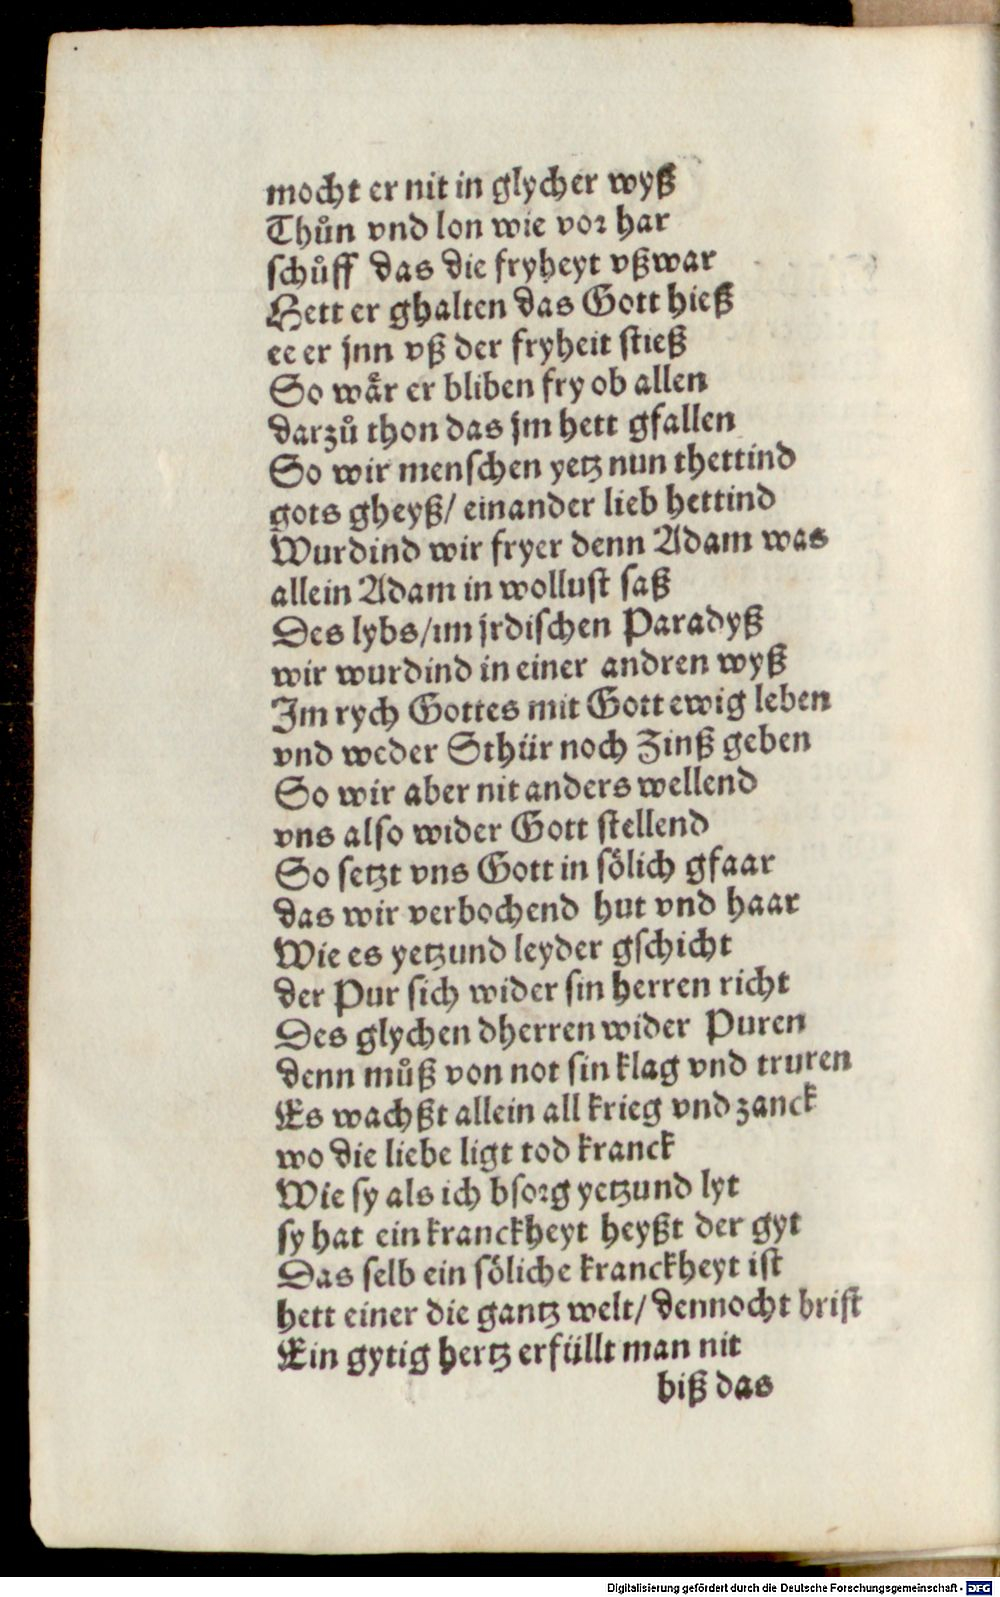 mocht er nit in glycher wyß
Thuͦn vnd lon wie vor har
schuͦff das die fryheyt vßwar
Hett er ghalten das Gott hieß
ee er jnn vß der fryheit stieß
So waͤr er bliben fry ob allen
darzuͦ thon das jm hett gfallen
So wir menschen yetz nun thettind
gots gheyß/ einander lieb hettind
Wurdind wir fryer denn Adam was
allein Adam in wollust saß
Des lybs/im jrdischen Paradyß
wir wurdind in einer andren wyß
Im rych Gottes mit Gott ewig leben
vnd weder Sthür noch Zinß geben
So wir aber nit anders wellend
vns also wider Gott stellend
So setzt vns Gott in soͤlich gfaar
das wir verbochend hut vnd haar
Wie es yetzund leyder gschicht
der Pur sich wider sin herren richt
Des glychen dherren wider Puren
denn muͦß von not sin klag vnd truren
Es wachßt allein all krieg vnd zanck
wo die liebe ligt tod kranck
Wie sy als ich bsorg yetzund lyt
sy hat ein kranckheyt heyßt der gyt
Das selb ein soͤliche kranckheyt ist
hett einer die gantz welt/ dennocht brist
Ein gytig hertz erfüllt man nit
biß das
Digitalisierung gefördert durch die Deutsche Forschungsgemeinschaft - DFG